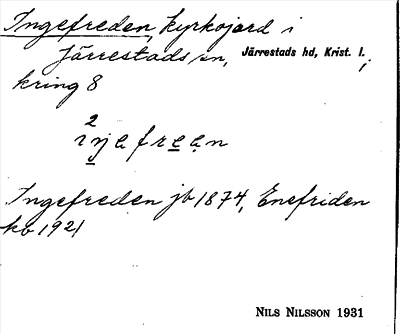 Ingefreden, kyrkojord i
Järrestads sn, Järrestads hd, Krist. l.,
kring 8
2
iŋefrean
Ingefreden jb 1874, Enefriden
kb 1921
NILS NILSSON 1931